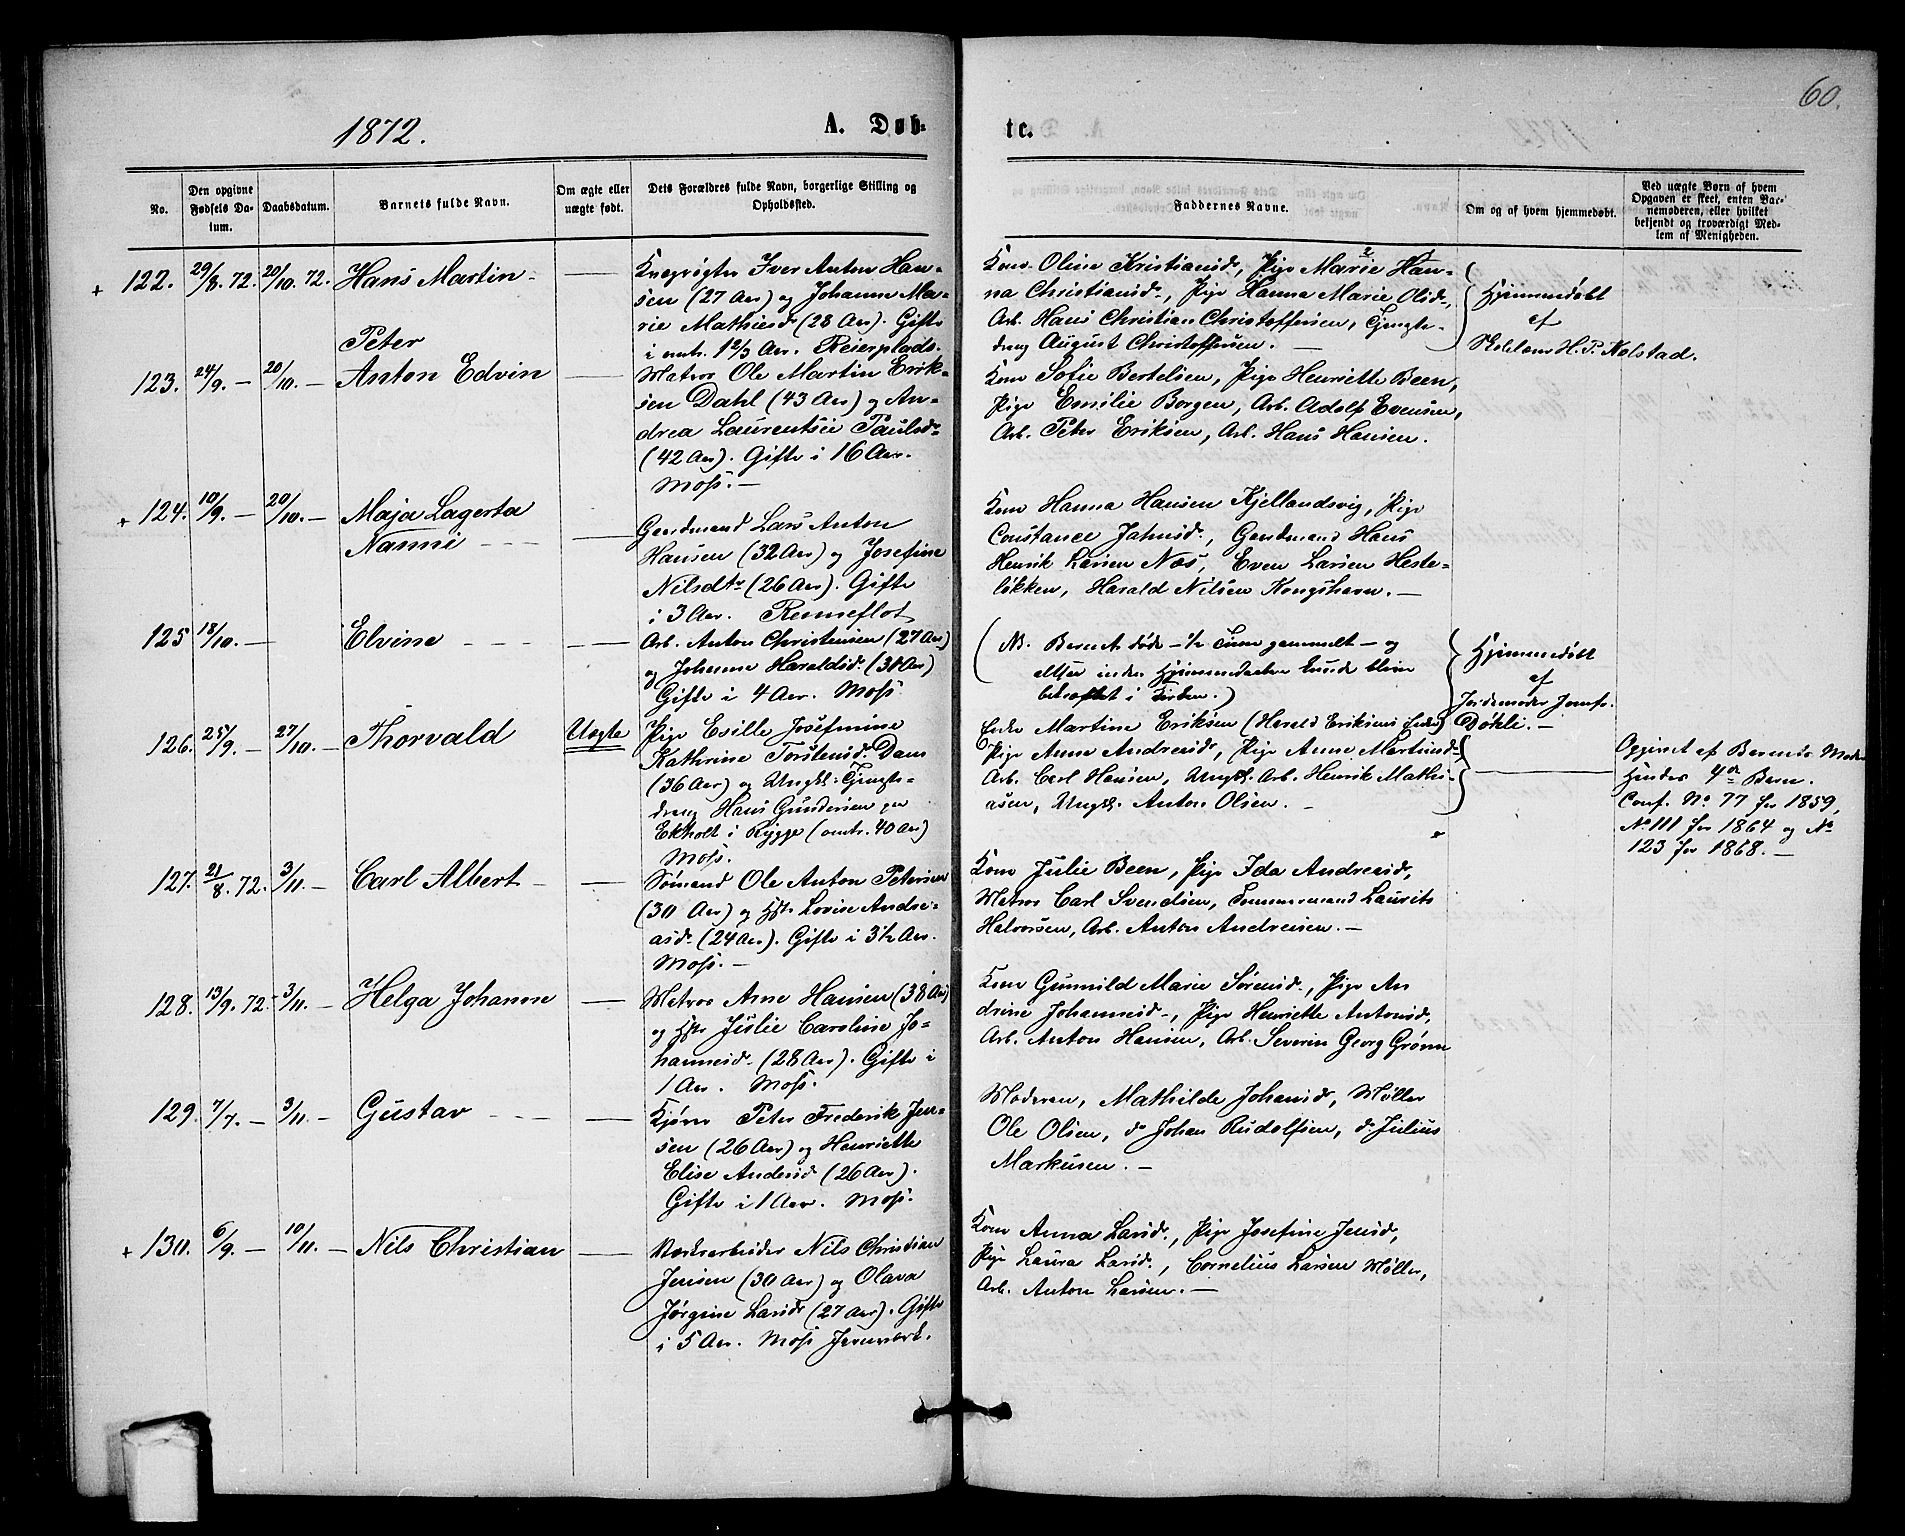 60.
1872.
A. Døb-
te.
No.
Den opgivne Fødsels Da-tum.
Daabsdatum.
Barnets fulde Navn.
Om ægte eller uægte født.
Dets Forældres fulde Navn, borgerlige Stilling og Opholdssted.
Faddernes Navne.
Om og af hvem hjemmedøbt.
Ved uægte Børn af hvem Opgaven er skeet, enten Bar-nemoderen, eller hvilket bekjendt og troværdigt Med-lem af Menigheden.
+ 122. 29/8. 72. 20/10. 72. Hans Martin
Iver Anton Han-
sen (27 Aar) og Johanne Ma-
rie Mathiesd. (28 Aar). Gifte
i omtr. 1 2/3 Aar. Reierplads.
Kone Oline Kristiansd., Pige Marie Han-
na Christiansd., Pige Hanna Marie Olsd.,
Arb. Hans Christian Christoffersen, Tjenste-
dreng August Christoffersen. —
Hjemmedøbt
af
H. P. Nolstad.
123. 24/9. — 20/10. — Peter
Anton Edvin
Matros Ole Martin Erik-
sen Dahl (43 Aar) og An-
drea Laurentsei Paulsd.
(42 Aar). Gifte i 16 Aar.
Moss. —
Kone Sofie Bertelsen, Pige Henriette Been,
Pige Emilie Borgen, Arb. Adolf Evensen,
Arb. Peter Eriksen, Arb. Hans Hansen.
+ 124. 10/9. — 20/10. — Maja Lagerta
Nanni
Gaardmand Lars Anton
Hansen (32 Aar) og Josefine
Nilsdtr (26 Aar). Gifte
i 3 Aar. Renneflot
Kone Hanna Hansen Kjellandsvig, Pige
Constance Jahnsd., Gaardmand Hans
Henrik Larsen Næs, Even Larsen Heste-
løkken, Harald Nilsen Kongshavn. —
125 18/10. — Elvine
Arb. Anton Christensen (27 Aar)
og Johanne Haraldsd. (30 Aar)
Gifte i 4 Aar. Moss.
(NB. Barnet døde — 1/2 Time gammelt — og
altsaa inden Hjemmedaaben kunde blive
bekræftet i Kirken.)
Hjemmedøbt
af
Jordemoder Jomfr.
Døhli. —
126. 25/9. — 27/10. — Thorvald
Uægte
Pige Esille Josefmine
Kathrine Torstensd. Dam
(36 Aar) og Ungkl. Tjenste-
dreng Hans Gundersen paa
Ekholt i Rygge (omtr. 40 Aar)
Moss.
Enke Martine Eriksen (Harald Eriksens Enke)
Pige Anne Andreasd., Pige Anne Martinsd.
Arb. Carl Hansen, Ungkl. Arb. Henrik Mathi-
asen, Ungkl. Anton Olsen. —
Opgivet af Barnets Moder
Hendes 4de Barn.
Conf. No 77 for 1859,
No 111 for 1864 og No
123 for 1868. —
127. 21/8. 72. 3/11. — Carl Albert
Sømand Ole Anton Petersen
(30 Aar) og Hstr. Lovise Andre-
asd. (24 Aar). Gifte i 3 1/2 Aar.
Moss. —
Kone Julie Been, Pige Ida Andreasd.,
Matros Carl Svendsen, Tømmermand Laurits
Halvorsen, Arb. Anton Andreasen. —
128. 13/9. 72. 3/11. — Helga Johanne
Matros Arne Hansen (38 Aar)
og Hstr. Julie Caroline Jo-
hannesd. (28 Aar). Gifte i
1 Aar. Moss.
Kone Gunnild Marie Sørensd., Pige An
drine Johannesd., Pige Henriette Antonsd.,
Arb. Anton Hansen, Arb. Severin Georg Grønn
129. 7/7. — 3/11. — Gustav
Kjører Peter Frederik Jen-
sen (26 Aar) og Henriette
Elise Andersd. (26 Aar).
Gifte i 1 Aar. Moss.
Moderen, Mathilde Johansd., Møller
Ole Olsen, do Johan Rudolfsen, do Julius
Markusen. —
+ 130. 6/9. — 10/11. — Nils Christian
Værksarbeider Nils Christian
Jensen (30 Aar) og Olava
Jørgine Larsd. (27 Aar). Gifte
i 5 Aar. Moss Jernværk.
Kone Anna Larsd., Pige Josefine Jensd.,
Pige Laura Larsd., Cornelius Larsen Møller,
Arb. Anton Larsen. —